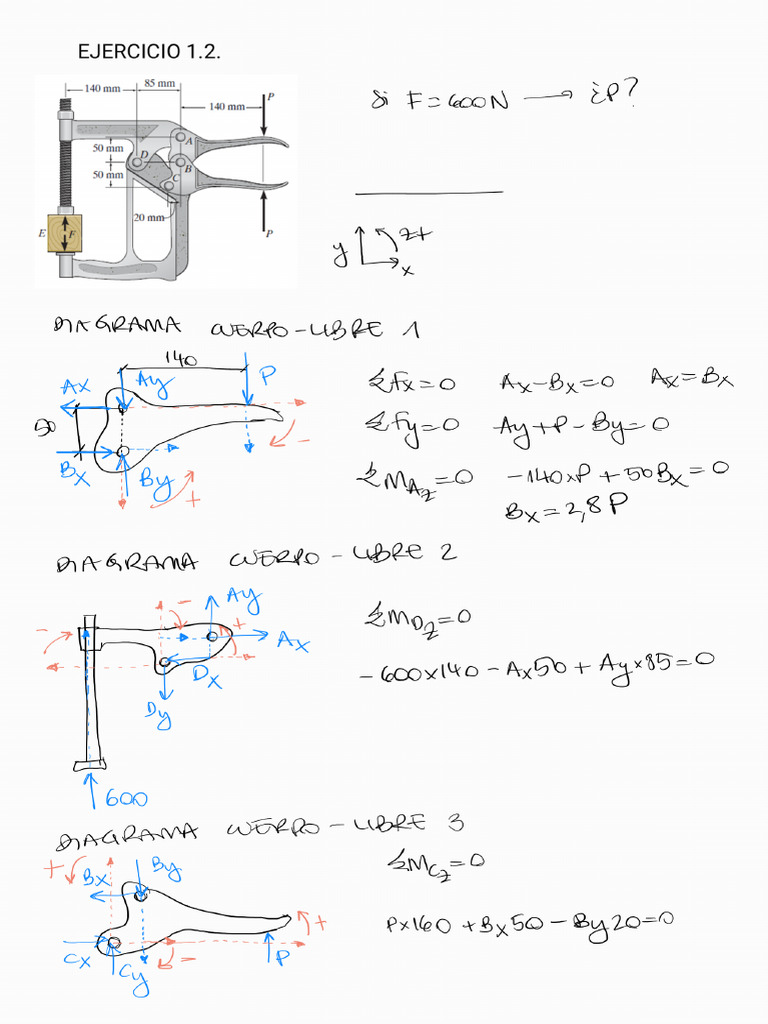 EJERCICIO 1.2.
140 mm
85 mm
P
140 mm
A
50 mm
D
B
50 mm
C
20 mm
E
F
P
Si F = 600N → ¿P?
y
z+
x
DIAGRAMA CUERPO-LIBRE 1
140
Ax
Ay
P
50
Bx
By
+
-
ΣFx=0 Ax-Bx=0 Ax=Bx
ΣFy=0 Ay+P-By=0
ΣMAz=0 -140xP+50Bx=0
Bx=2,8P
DIAGRAMA CUERPO-LIBRE 2
-
-
Ay
+
Ax
Dx
Dy
600
ΣMDz=0
-600x140-Ax50+Ayx85=0
DIAGRAMA CUERPO-LIBRE 3
+
Bx
By
Cx
Cy
-
P
+
ΣMCz=0
Px160+Bx50-By20=0